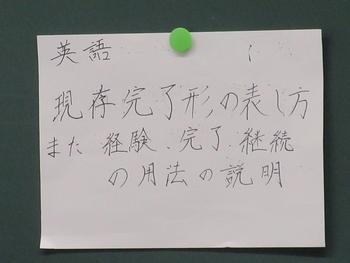 英語
現存完了形の表し方
また 経験、完了、継続
の用法の説明